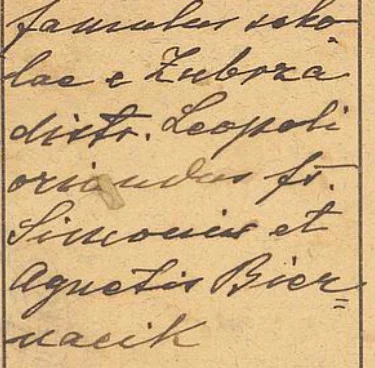 famulus scho-
lae e Zubrza
distr. Leopoli
oriundus fr.
Simonis et
Agnetis Bier=
nacik